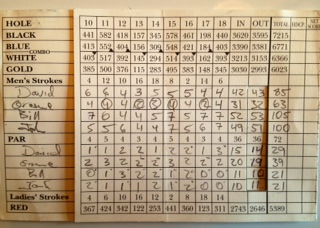 HOLE 10 11 12 13 14 15 16 17 18 IN OUT TOTAL HDCP. NET SCORE
BLACK 441 582 418 157 345 578 457 202 440 3620 3595 7215
BLUE 413 552 404 156 309 548 421 184 403 3390 3381 6771
COMBO
WHITE 403 517 392 145 294 514 393 162 393 3213 3153 6366
GOLD 385 500 376 115 283 495 383 148 345 3030 2993 6023
Men's Strokes 4 12 10 16 18 8 2 14 6
David 6 6 4 3 5 5 5 4 4 42 43 85
4 4 4 31 32 63
Bill 7 6 4 4 5 7 5 7 7 52 53 105
5 5 6 4 4 7 5 6 7 49 51 100
PAR 4 5 4 3 4 5 4 3 4 36 36 72
David 1 1 2 2 1 2 2 1 3 15 14 29
2 3 2 2 2 2 3 2 2 20 19 39
Bill 0 1 3 2 1 2 0 0 11 10 21
2 1 1 1 2 1 2 0 0 10 11 21
Ladies' Strokes 4 6 10 16 12 2 8 18 14
RED 367 424 342 122 253 441 360 123 311 2743 2646 5389